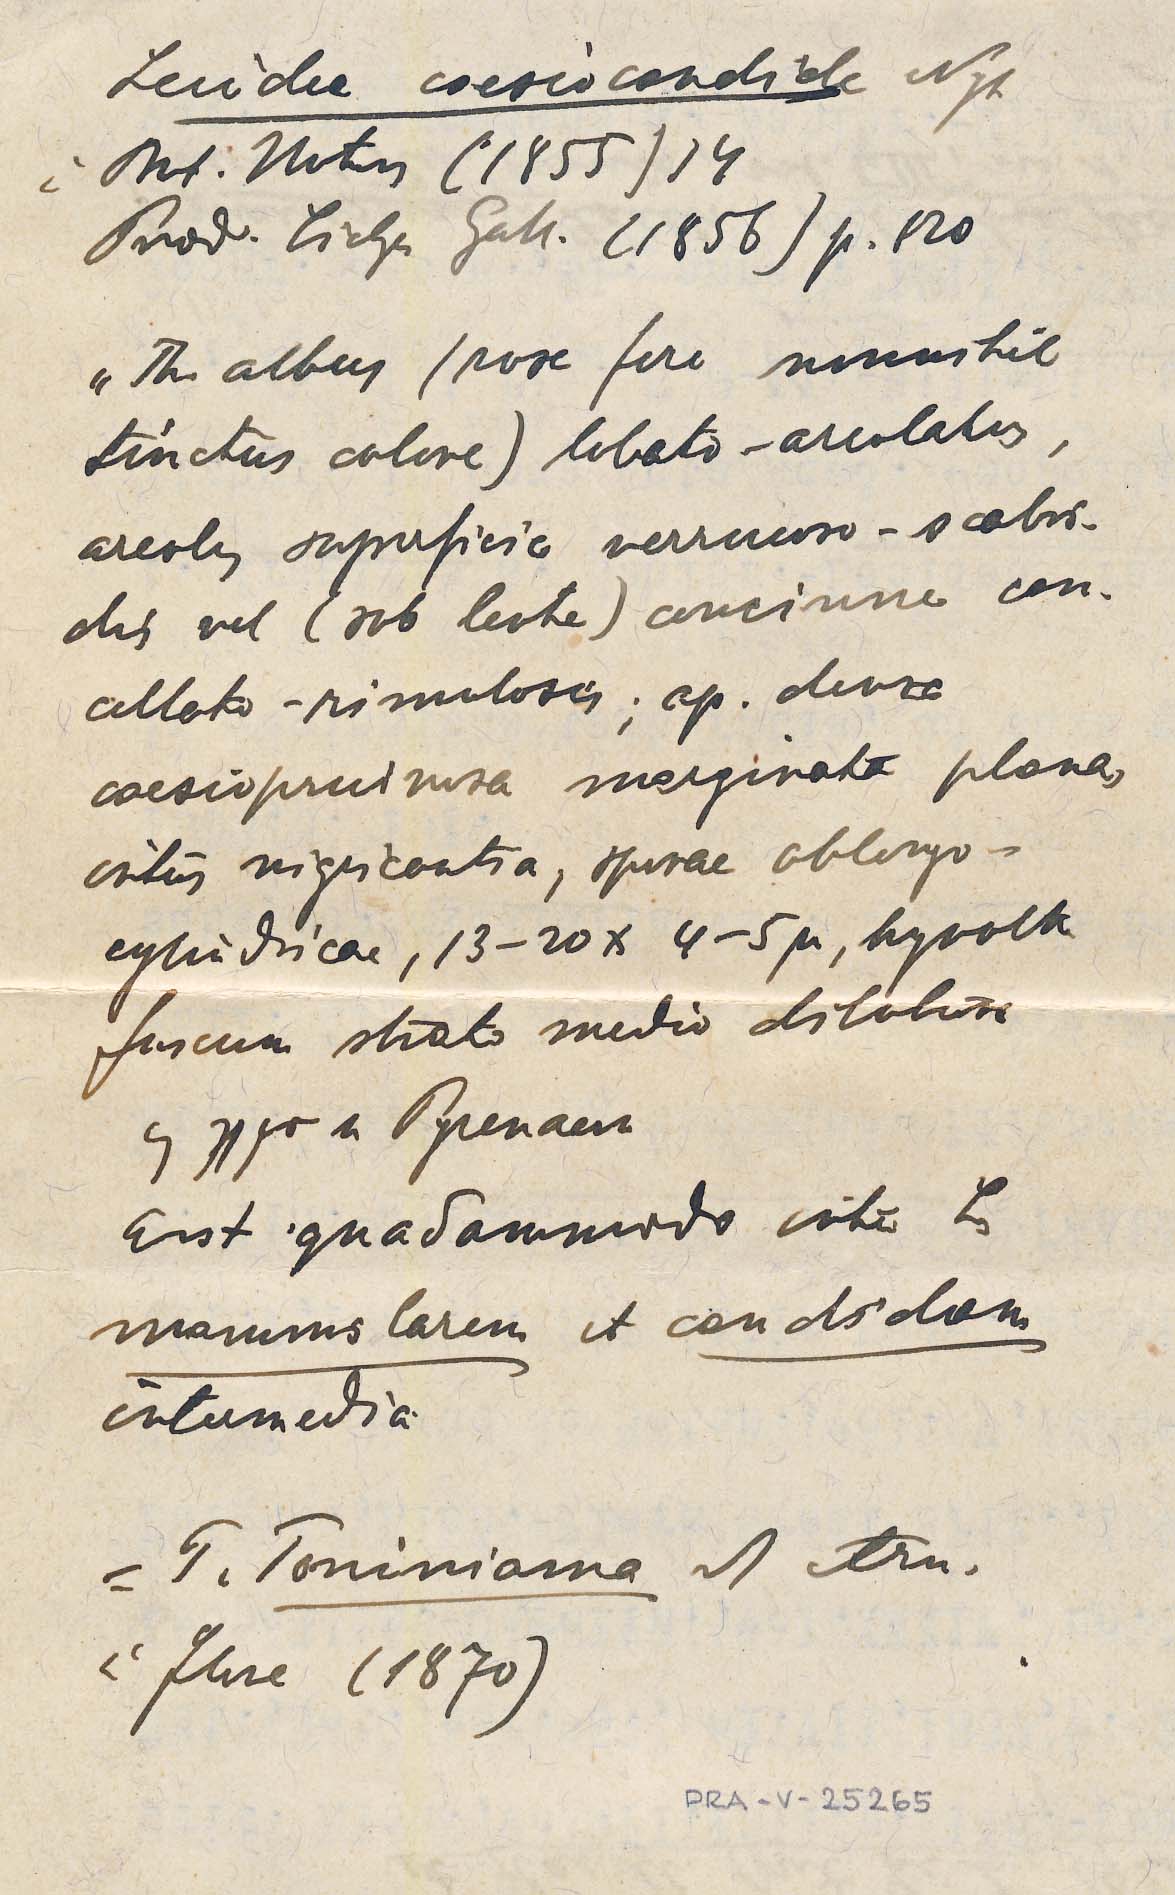 Lecidea caesiocandida Nyl
i Bot. Notis (1855) 14
Prod. Lich. Gall. (1856) p. 120
„Th. albus (rose fere nonnihil
tinctus colore) lobato-areolatus,
areolis superficie verrucoso-scabri-
dis vel (sub lente) concinne can-
cellato-rimulosis; ap. dense
caesiopruinosa marginata plana,
intus nigricantia, sporae oblongo-
cylindricae, 13-20 x 4-5 µ, hypoth
fuscum strato medio dilutiore
Pyrenaeis
Est quadammodo inter L.
mammillarem et candidam
intermedia
= T. Toniniana Arn.
i Flora (1870)
PRA-V-25265